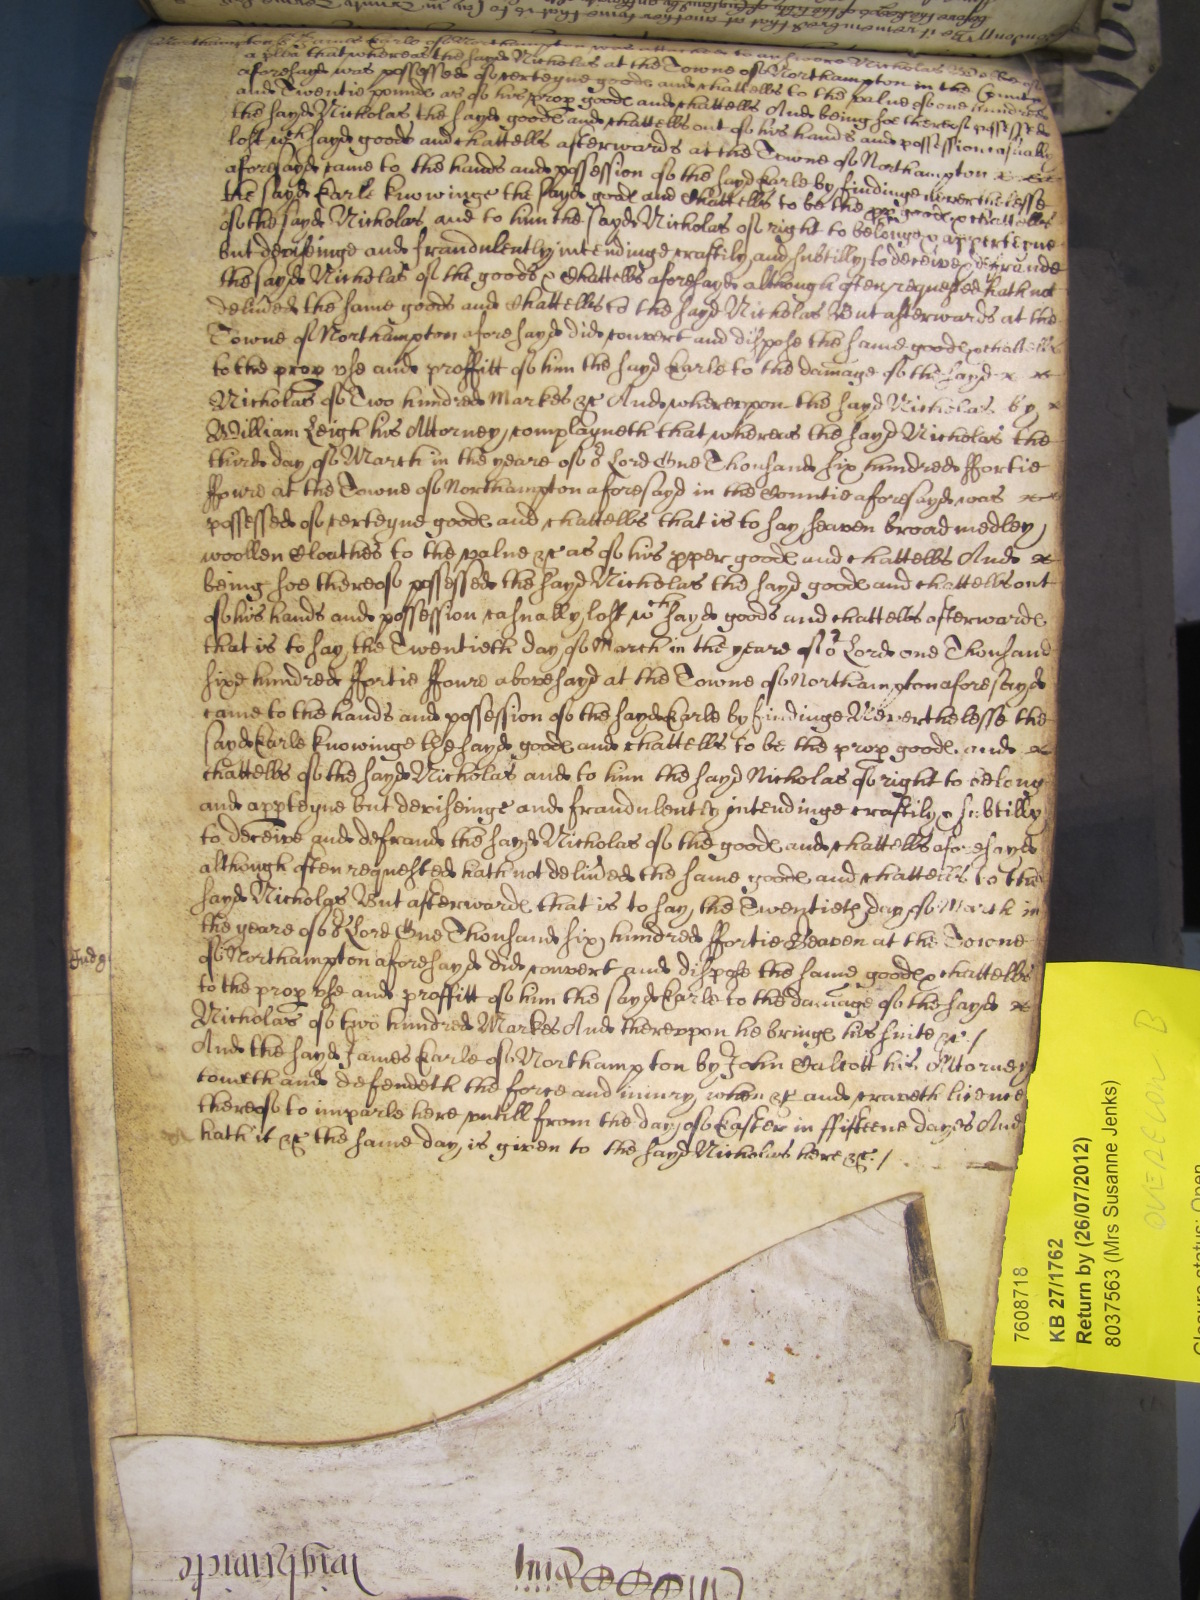 Northampton James Earle of Northampton was attached to answere Nicholas
a plea that whereas the sayd Nicholas at the Towne of Northampton in the Countie
aforesayd was possessed of certeyne goods and chattells to the value of one hundred
and Twentie pounds as of his prop goods and chattells And being soe thereof possessed
the sayd Nicholas the sayd goods and chattells out of his hands and possession casually
lost wch sayd goods and chattells afterwards at the Towne of Northampton
aforesayd came to the hands and possession of the sayd Earle by findinge neverthelesse
the sayd Earle knowinge the sayd goods and Chattells to be the pper goods & chattells
of the sayd Nicholas and to him the sayd Nicholas of right to belonge & apperteyne
but deviseinge and fraudulently intendinge craftily and subtilly to deceive & defraude
the sayd Nicholas of the goods & Chattells aforesayd although often requested hath not
delived the same goods and Chattells to the sayd Nicholas But afterwards at the
Towne of Northampton aforesayd did convert and dispose the same goods & chattells
to the prop vse and proffitt of him the sayd Earle to the damage of the sayd
Nicholas of Two hundred Markes &c And whereupon the sayd Nicholas by
William Leigh his Attorney complayneth that whereas the sayd Nicholas the
third day of March in the yeare of or Lord One Thousand six hundred ffortie
ffowre at the Towne of Northampton aforesayd in the Countie aforesayd was
possessed of certeyne goods and chattells that is to say seaven broad medley
woollen Cloathes to the value &c as of his pper goods and chattells And
being soe thereof possessed the sayd Nicholas the sayd goods and chattells out
of his hands and possession casually lost wch sayd goods and chattells afterwards
that is to say the Twentieth day of March in the yeare of or Lord one Thousand
sixe hundred ffortie ffowre abovesayd at the Towne of Northampton aforesayd
came to the hands and possession of the sayd Earle by findinge Neverthelesse the
sayd Earle knowinge the sayd goods and chattells to be the prop goods and
chattells of the sayd Nicholas and to him the sayd Nicholas of right to belong
and appteyne but deviseinge and fraudulently intendinge craftily & subtilly
to deceive and defraud the sayd Nicholas of the goods and chattells aforesayd
although often requested hath not delived the same goods and chattells to the
sayd Nicholas But afterwards that is to say the Twentieth day of March in
the yeare of or Lord One Thousand six hundred ffortie Seaven at the Towne
of Northampton aforesayd did convert and dispose the same goods & chattells
to the prop vse and proffitt of him the sayd Earle to the damage of the sayd
Nicholas of two hundred Markes And thereupon he brings his suite &c /
And the sayd James Earle of Northampton by John Calcott his Attorney
cometh and defendeth the force and iniury when &c and craveth licence
thereof to imparle here vntill from the day of Easter in ffifteene dayes And
hath it &c the same day is given to the sayd Nicholas here &c /
7608718
KB 27/1762
Return by (26/07/2012)
8037563 (Mrs Susanne Jenks)
Closure status: Open
Wightwicke